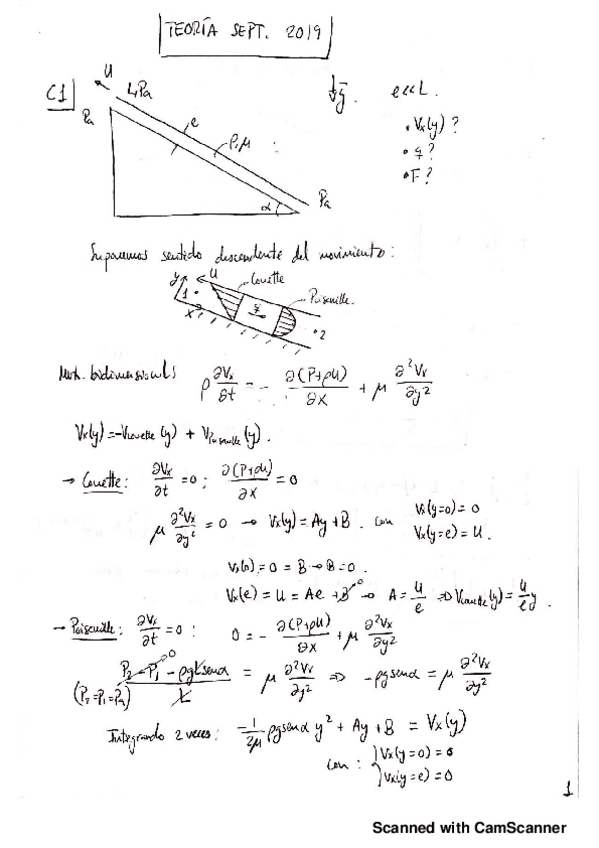 TEORÍA SEPT. 2019
C1
U
4Pa
Pa
e
ρ, μ
α
Pa
↓g̅.
e<<L.
• Vx(y)?
• q?
• F?
Suponemos sentido descendente del movimiento:
y
U
Couette
Poiseuille.
1
x
q
2
Mov. bidimensional
ρ ∂Vx/∂t = - ∂(P+ρU)/∂x + μ ∂²Vx/∂y²
Vx(y) = -Vcouette(y) + VPoiseuille(y).
→ Couette: ∂Vx/∂t = 0; ∂(P+ρU)/∂x = 0
μ ∂²Vx/∂y² = 0 → Vx(y) = Ay + B. con Vx(y=0) = 0
Vx(y=e) = U.
Vx(0) = 0 = B → B = 0.
Vx(e) = U = Ae + B⁰ → A = U/e ⇒ Vcouette(y) = U/e y.
→ Poiseuille: ∂Vx/∂t = 0: 0 = - ∂(P+ρU)/∂x + μ ∂²Vx/∂y²
P2 - P1 - ρgL senα / L = μ ∂²Vx/∂y² ⇒ -ρg senα = μ ∂²Vx/∂y²
(P2=P1=Pa)
Integrando 2 veces: -1/2μ ρg senα y² + Ay + B = Vx(y)
con: Vx(y=0) = 0
Vx(y=e) = 0
1
Scanned with CamScanner